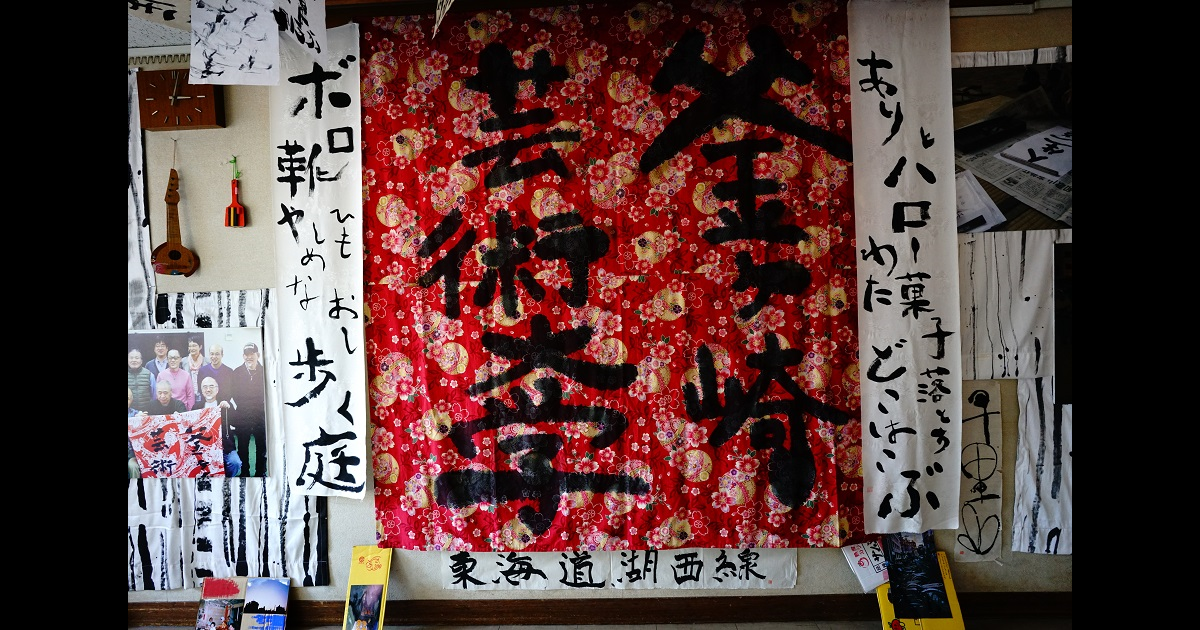 釜ヶ崎
芸術大学
ありとハロー
わた菓子落とす
どこはこぶ
ボロ靴や
ひもしめなおし
歩く庭
東海道湖西線
芸術